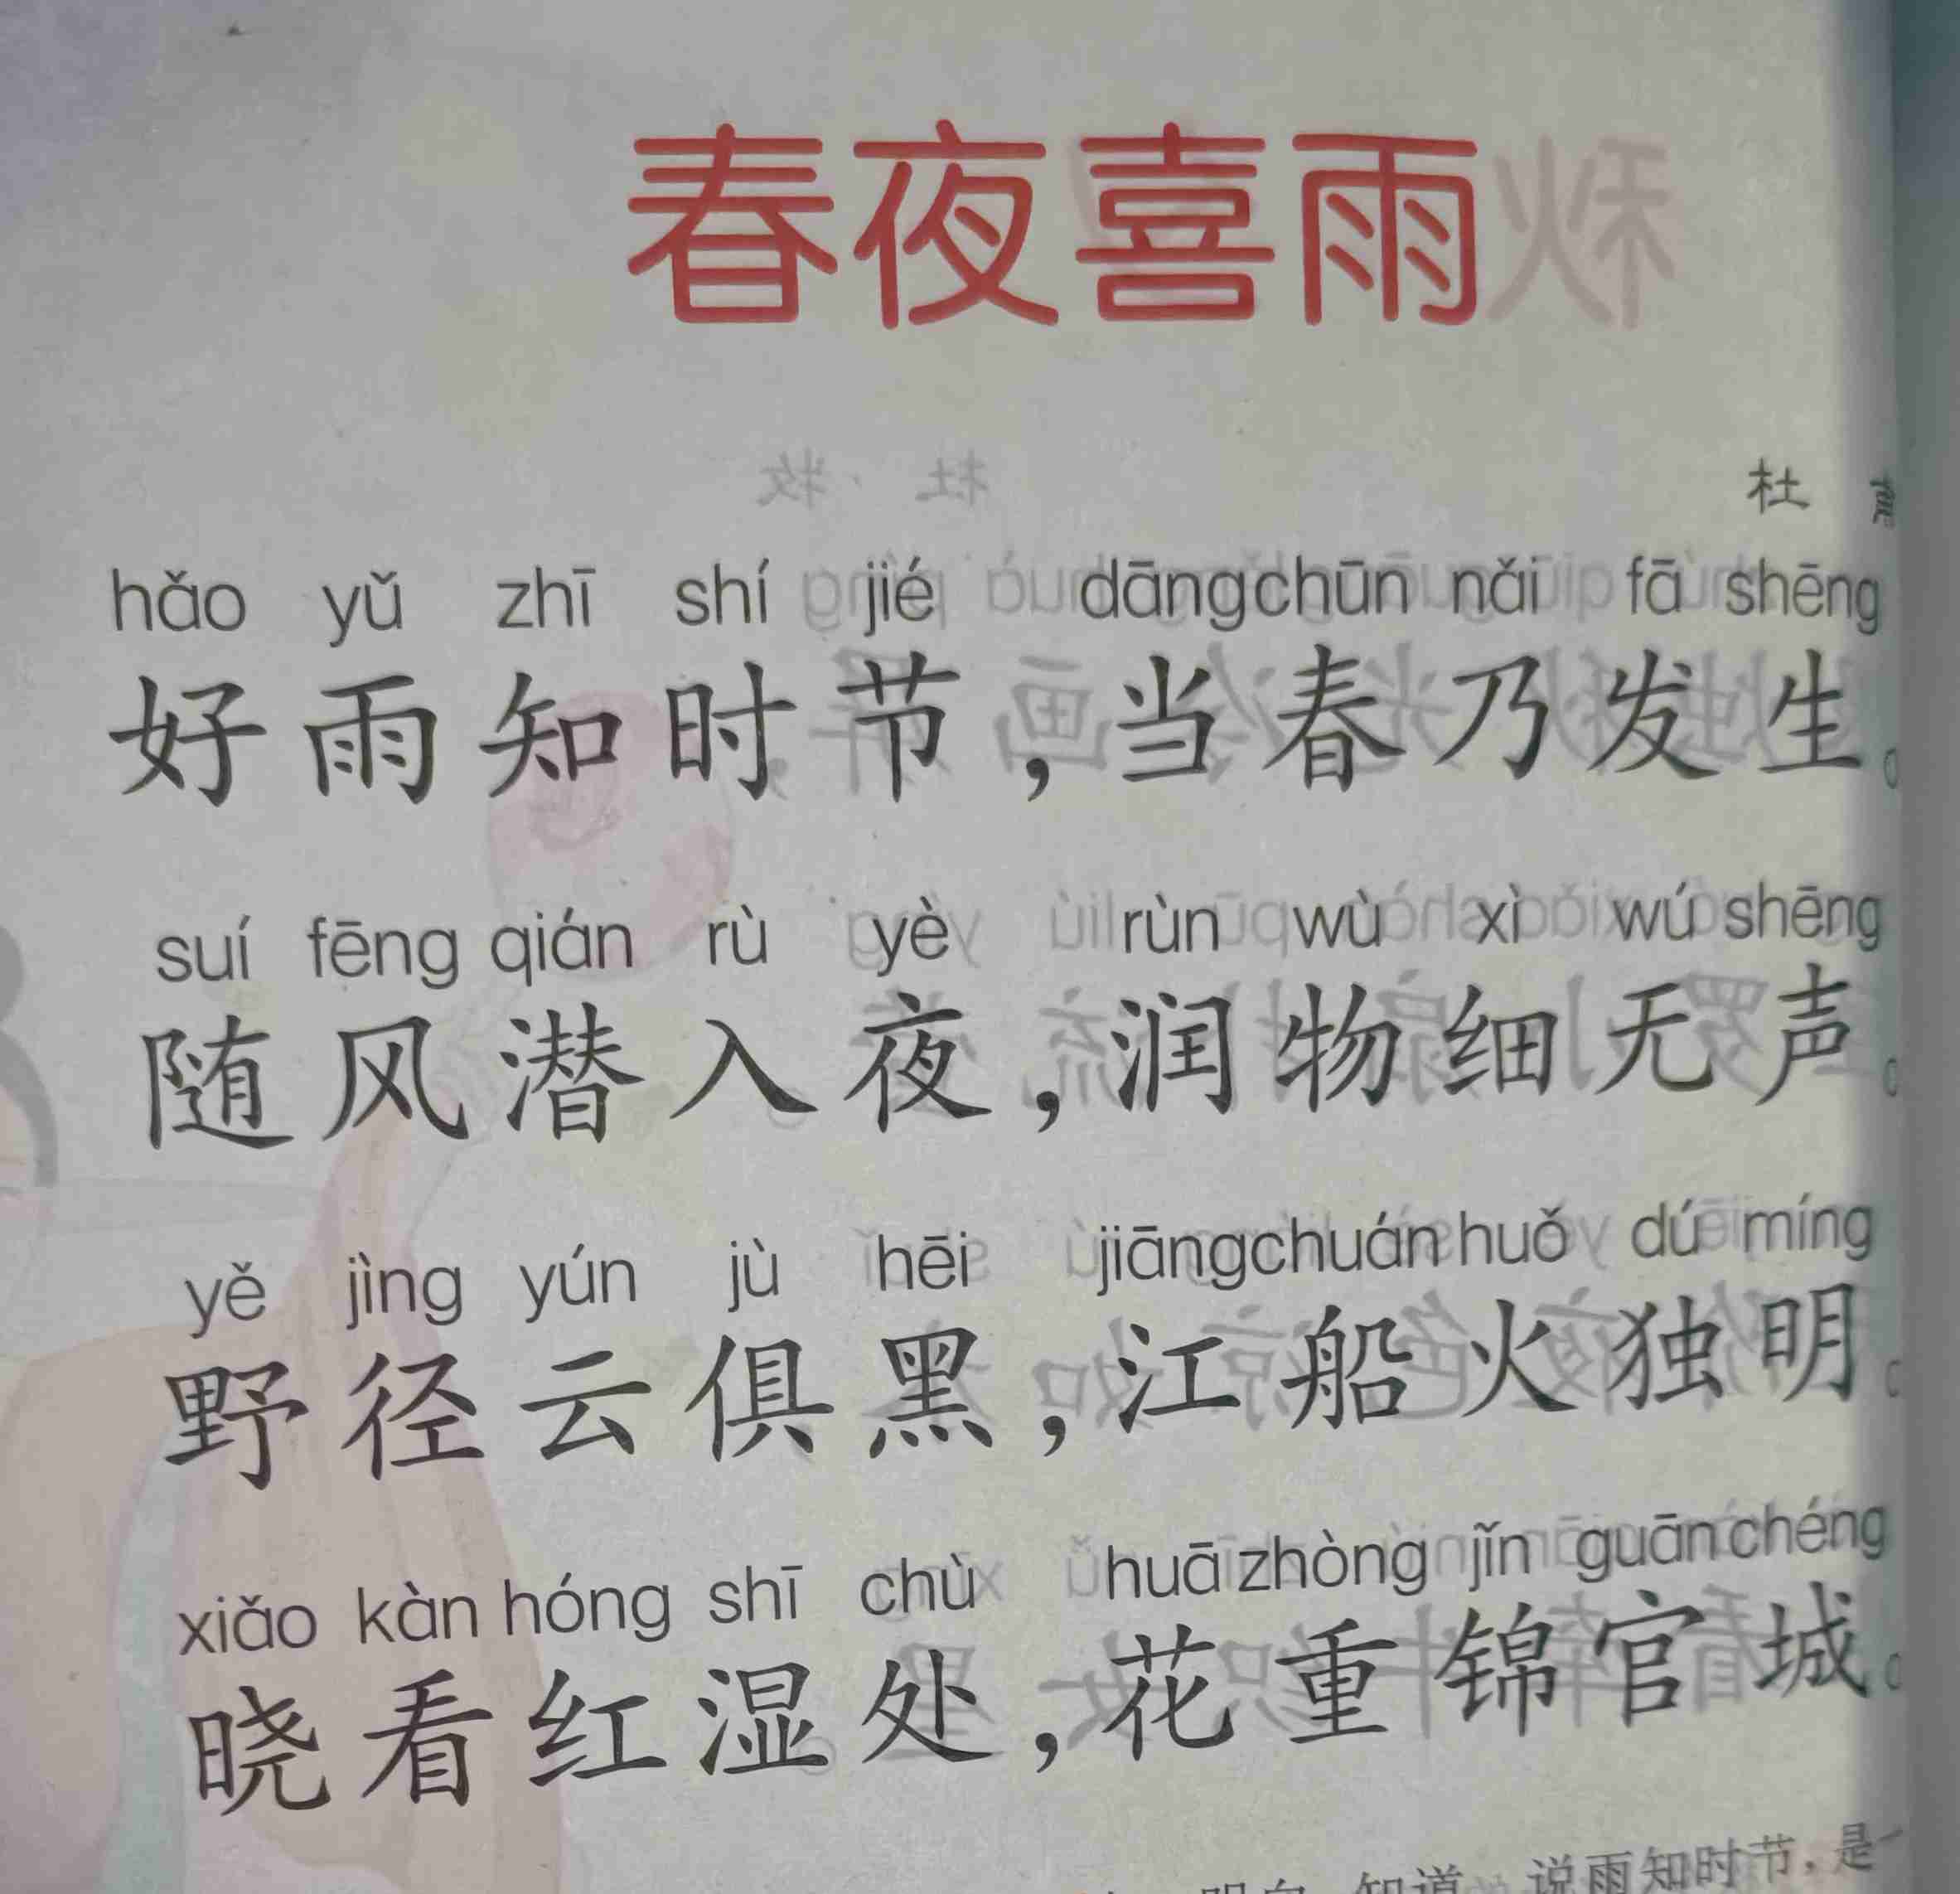 春夜喜雨
杜
hǎo yǔ zhī shí jié dāng chūn nǎi fā shēng
好雨知时节，当春乃发生。
suí fēng qián rù yè rùn wù xì wú shēng
随风潜入夜，润物细无声。
yě jìng yún jù hēi jiāng chuán huǒ dú míng
野径云俱黑，江船火独明。
xiǎo kàn hóng shī chù huā zhòng jǐn guān chéng
晓看红湿处，花重锦官城。
说雨知时节，是